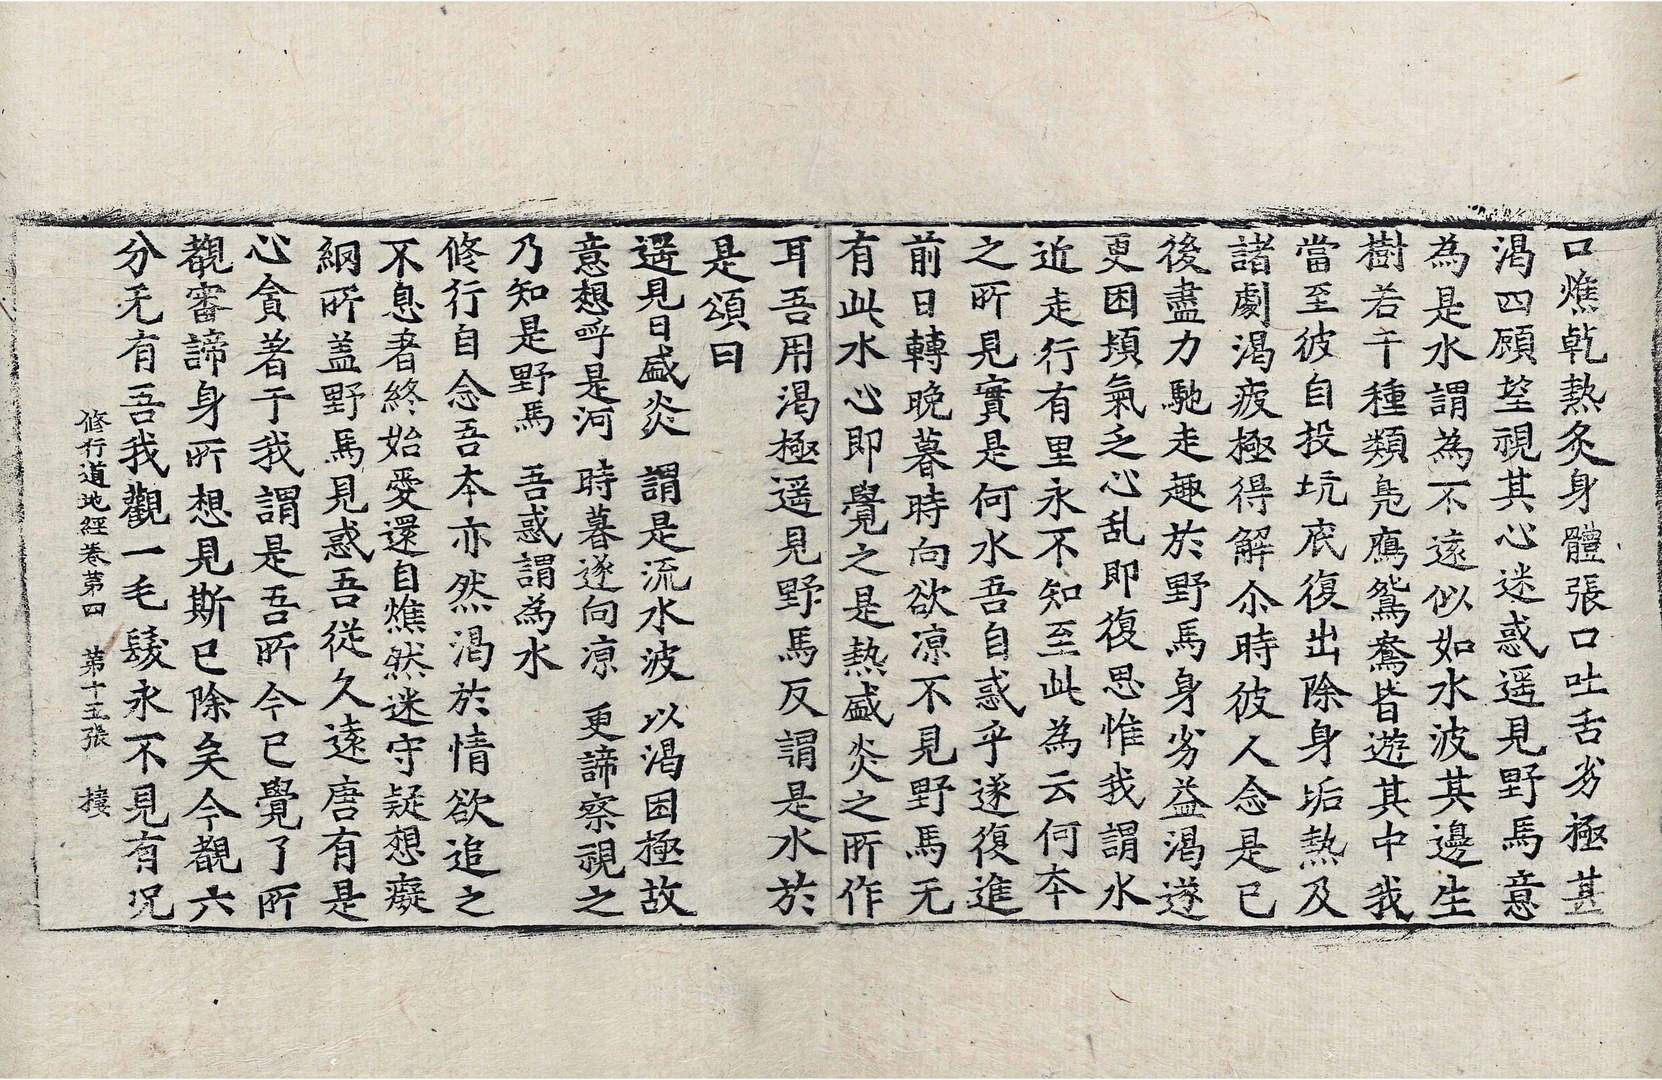 口燋乾熱炙身體張口吐舌劣極甚
渴四顧望視其心迷惑遥見野馬意
為是水謂為不遠似如水波其邊生
樹若干種類鳧鴈鴛鴦皆遊其中我
當至彼自投坑底復出除身垢熱及
諸劇渴疲極得解尒時彼人念是已
後盡力馳走趣於野馬身劣益渴遂
更困頓氣乏心乱即復思惟我謂水
近走行有里永不知至此為云何夲
之所見實是何水吾自惑乎遂復進
前日轉晚暮時向欲凉不見野馬无
有此水心即覺之是熱盛炎之所作
耳吾用渴極遥見野馬反謂是水於
是頌曰
遥見日盛炎　謂是流水波　以渴困極故
意想呼是河　時暮遂向凉　更諦察視之
乃知是野馬　吾惑謂為水
修行自念吾夲亦然渴於情欲追之
不息著終始愛還自燋然迷守疑想癡
網所盖野馬見惑吾從久遠唐有是
心貪著于我謂是吾所今已覺了所
覩審諦身所想見斯已除矣今覩六
分无有吾我觀一毛髮永不見有况
修行道地經卷第四　第十五張　摟